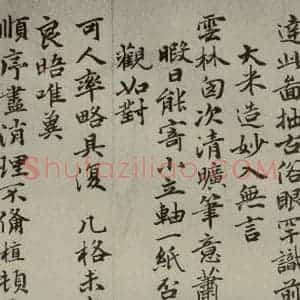 達此啚拙古俗眼罕識前
大米造妙入無言
雲林匃次清曠筆意蕭
暇日能寄小立軸一紙否
觀如對
可人率略具復 几格未
良晤唯冀
順序盡消理不俻植頓
Shufaziliao.com